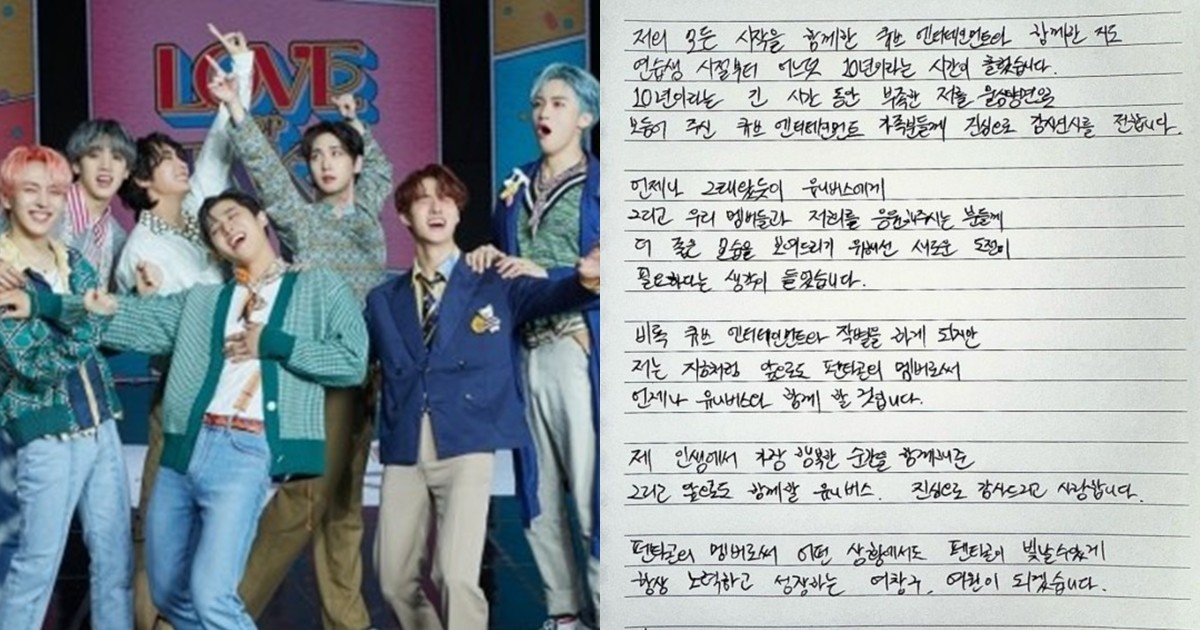 LOVE
OR
저의 모든 시작을 함께한 큐브 엔터테인먼트와 함께한 지도
연습생 시절부터 어느덧 10년이라는 시간이 흘렀습니다.
10년이라는 긴 시간 동안 부족한 저를 물심양면으로
보듬어 주신 큐브 엔터테인먼트 가족분들께 진심으로 감사인사를 전합니다.
언제나 그래왔듯이 유니버스에게
그리고 우리 멤버들과 저희를 응원해주시는 분들께
더 좋은 모습을 보여드리기 위해선 새로운 도전이
필요하다는 생각이 들었습니다.
비록 큐브 엔터테인먼트와 작별을 하게 되지만
저는 지금처럼 앞으로도 펜타곤의 멤버로써
언제나 유니버스와 함께 할 것입니다.
제 인생에서 가장 행복한 순간을 함께해준
그리고 앞으로도 함께할 유니버스. 진심으로 감사드리고 사랑합니다.
펜타곤의 멤버로써 어떤 상황에서도 펜타곤이 빛날 수 있게
항상 노력하고 성장하는 여창구, 여원이 되겠습니다.